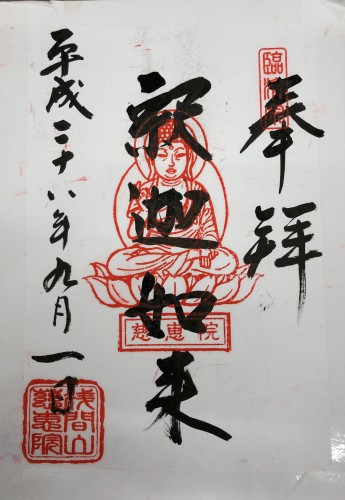 奉拝
釈迦如来
慈恵院
平成二十八年九月一日
浅間山
慈恵院